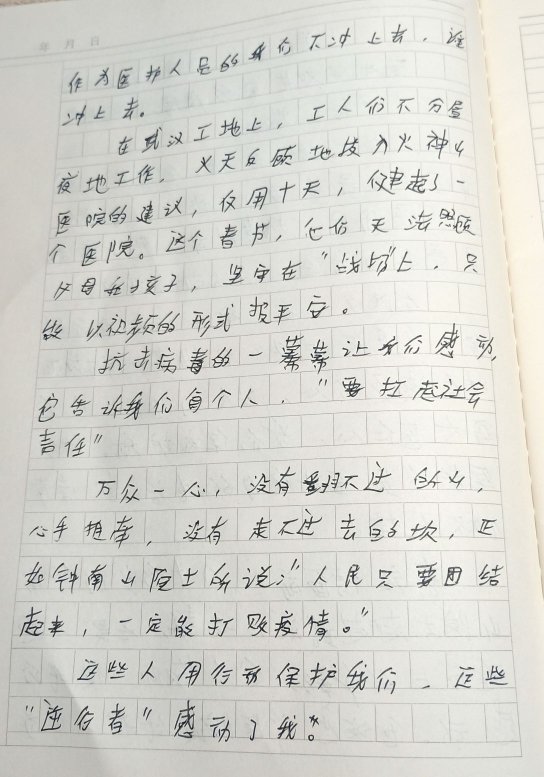 年 月 日
作为医护人员的我们不冲上去，谁
冲上去。
在武汉工地上，工人们不分昼
夜地工作，义无反顾地投入火神山
医院的建议，仅用十天，便建起了一
个医院。这个春节，他们无法照顾
父母和孩子，坚守在“战场”上，只
能以视频的形式报平安。
抗击病毒的一幕幕让我们感动，
它告诉我们每个人，“要扛起社会
责任”
万众一心，没有翻不过的山，
心手相牵，没有走不过去的坎，正
如钟南山院士所说：“人民只要团结
起来，一定能打败疫情。”
这些人用行动保护我们，这些
“逆行者”感动了我。